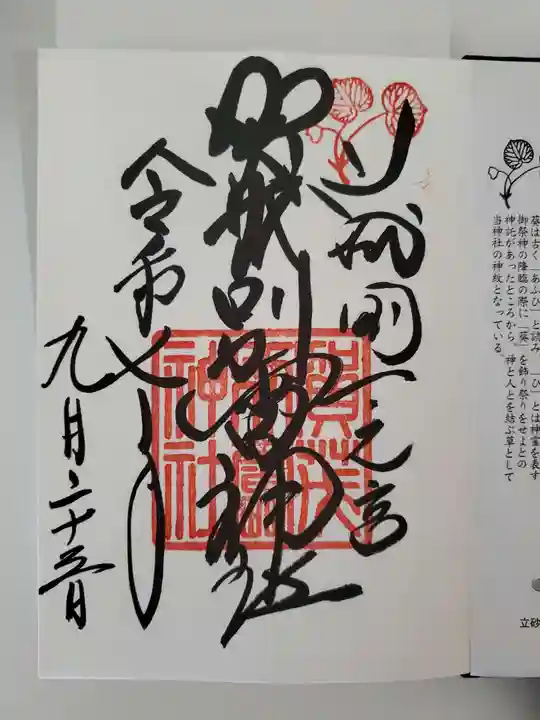 葵は古く「あふひ」と読み「ひ」とは神霊を表す
御祭神の降臨の際に「葵」を飾り祭りをせよとの
神託があったところから、神と人とを結ぶ草として
当神社の神紋となっている。
立砂
山城国一之宮
賀茂別雷神社
令和七年
九月二十三日
賀茂
別雷
神社